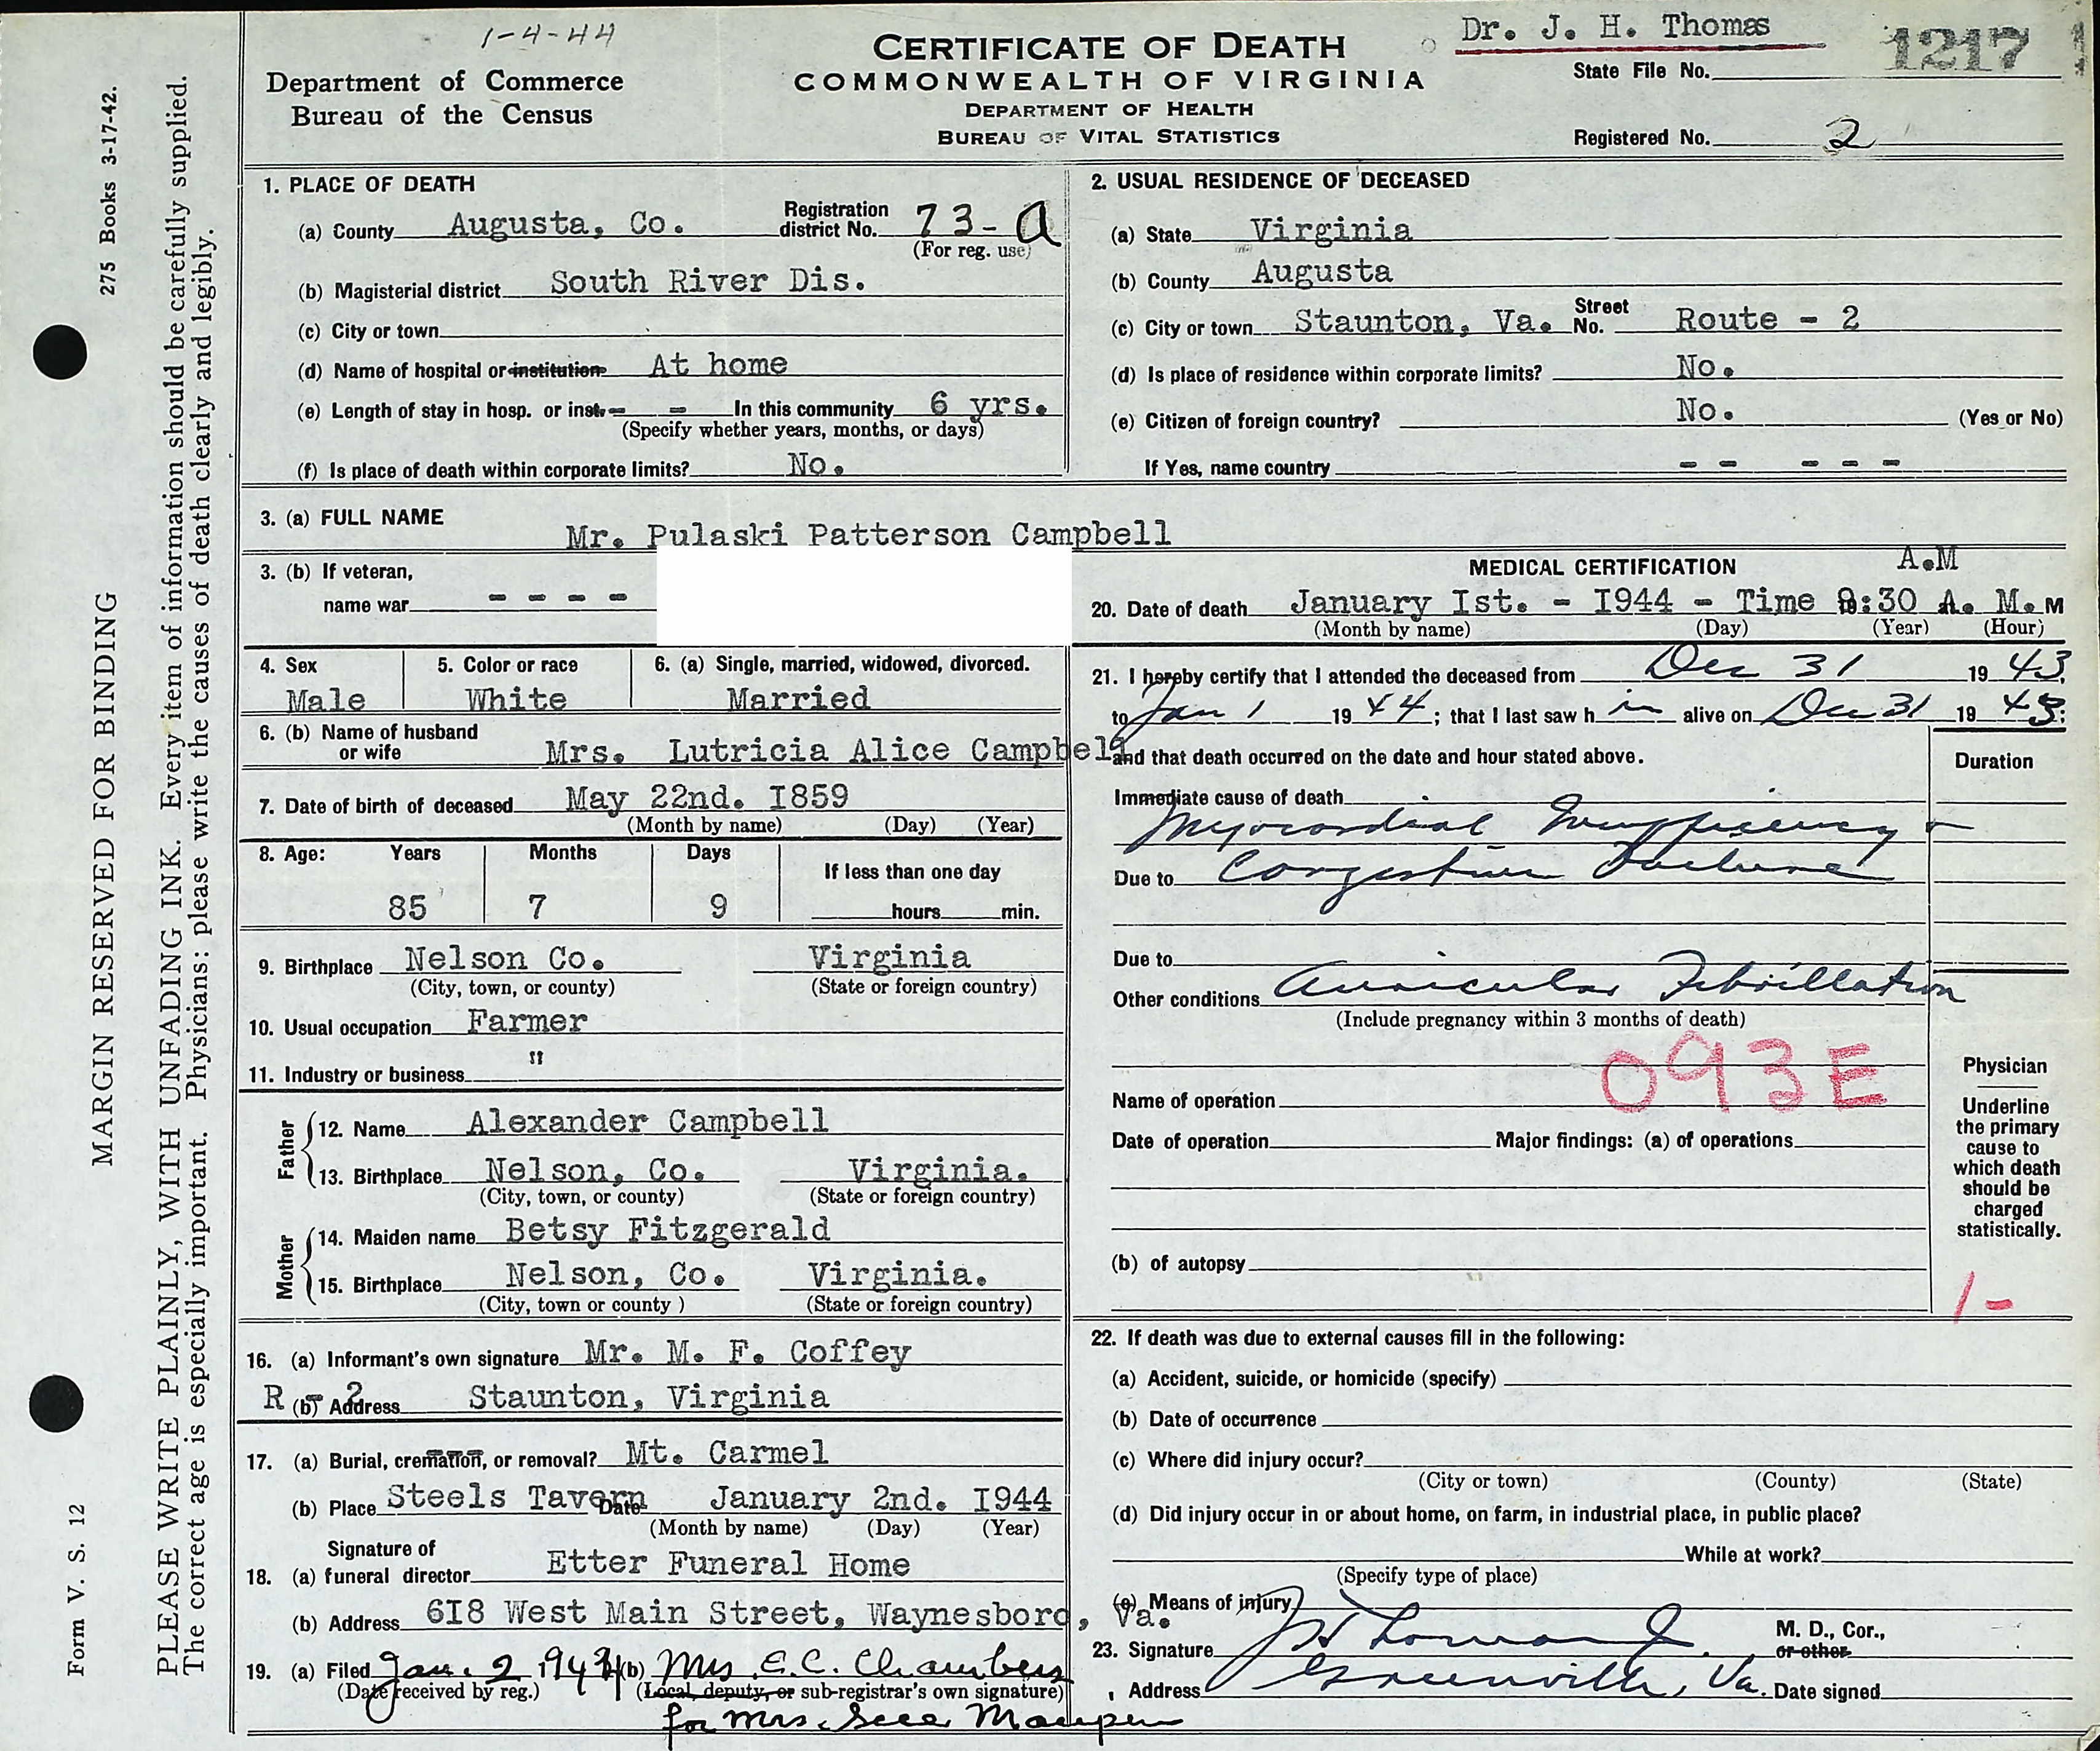 1-4-44
Dr. J. H. Thomas
1217
Department of Commerce
Bureau of the Census
CERTIFICATE OF DEATH
COMMONWEALTH OF VIRGINIA
DEPARTMENT OF HEALTH
BUREAU OF VITAL STATISTICS
State File No.
Registered No. 2
275 Books 3-17-42.
MARGIN RESERVED FOR BINDING
Form V. S. 12
PLEASE WRITE PLAINLY, WITH UNFADING INK. Every item of information should be carefully supplied.
The correct age is especially important. Physicians: please write the causes of death clearly and legibly.
1. PLACE OF DEATH
(a) County Augusta, Co. Registration district No. 73-a
(For reg. use)
(b) Magisterial district South River Dis.
(c) City or town
(d) Name of hospital or institution At home
(e) Length of stay in hosp. or inst. - - In this community 6 yrs.
(Specify whether years, months, or days)
(f) Is place of death within corporate limits? No.
2. USUAL RESIDENCE OF DECEASED
(a) State Virginia
(b) County Augusta
(c) City or town Staunton, Va. Street No. Route - 2
(d) Is place of residence within corporate limits? No.
(e) Citizen of foreign country? No. (Yes or No)
If Yes, name country - - - - -
3. (a) FULL NAME Mr. Pulaski Patterson Campbell
3. (b) If veteran,
name war - - - -
4. Sex 5. Color or race 6. (a) Single, married, widowed, divorced.
Male White Married
6. (b) Name of husband
or wife Mrs. Lutricia Alice Campbell
7. Date of birth of deceased May 22nd. I859
(Month by name) (Day) (Year)
8. Age: Years Months Days If less than one day
85 7 9 hours min.
9. Birthplace Nelson Co. Virginia
(City, town, or county) (State or foreign country)
10. Usual occupation Farmer
11. Industry or business "
Father
12. Name Alexander Campbell
13. Birthplace Nelson, Co. Virginia.
(City, town, or county) (State or foreign country)
Mother
14. Maiden name Betsy Fitzgerald
15. Birthplace Nelson, Co. Virginia.
(City, town or county ) (State or foreign country)
16. (a) Informant's own signature Mr. M. F. Coffey
R - 2 (b) Address Staunton, Virginia
17. (a) Burial, cremation, or removal? Mt. Carmel
(b) Place Steels Tavern Date January 2nd. I944
(Month by name) (Day) (Year)
Signature of
18. (a) funeral director Etter Funeral Home
(b) Address 6I8 West Main Street, Waynesboro, Va.
19. (a) Filed Jan. 2 1944 (b) Mrs. E. C. Chambers
(Date received by reg.) (Local, deputy, or sub-registrar's own signature)
for Mrs.
MEDICAL CERTIFICATION A.M
20. Date of death January Ist. - I944 - Time 8:30 A. M. M
(Month by name) (Day) (Year) (Hour)
21. I hereby certify that I attended the deceased from Dec 31 19 43,
to Jan 1 19 44; that I last saw h im alive on Dec 31 19 43;
and that death occurred on the date and hour stated above.
Duration
Immediate cause of death
Myocardial Insufficiency
Due to Congestive Failure
Due to
Other conditions Auricular Fibrillation
(Include pregnancy within 3 months of death)
093E
Name of operation
Date of operation Major findings: (a) of operations
(b) of autopsy
Physician
Underline
the primary
cause to
which death
should be
charged
statistically.
1-
22. If death was due to external causes fill in the following:
(a) Accident, suicide, or homicide (specify)
(b) Date of occurrence
(c) Where did injury occur?
(City or town) (County) (State)
(d) Did injury occur in or about home, on farm, in industrial place, in public place?
While at work?
(Specify type of place)
(e) Means of injury
23. Signature JH Thomas Jr M. D., Cor., or other
Address Greenville, Va. Date signed